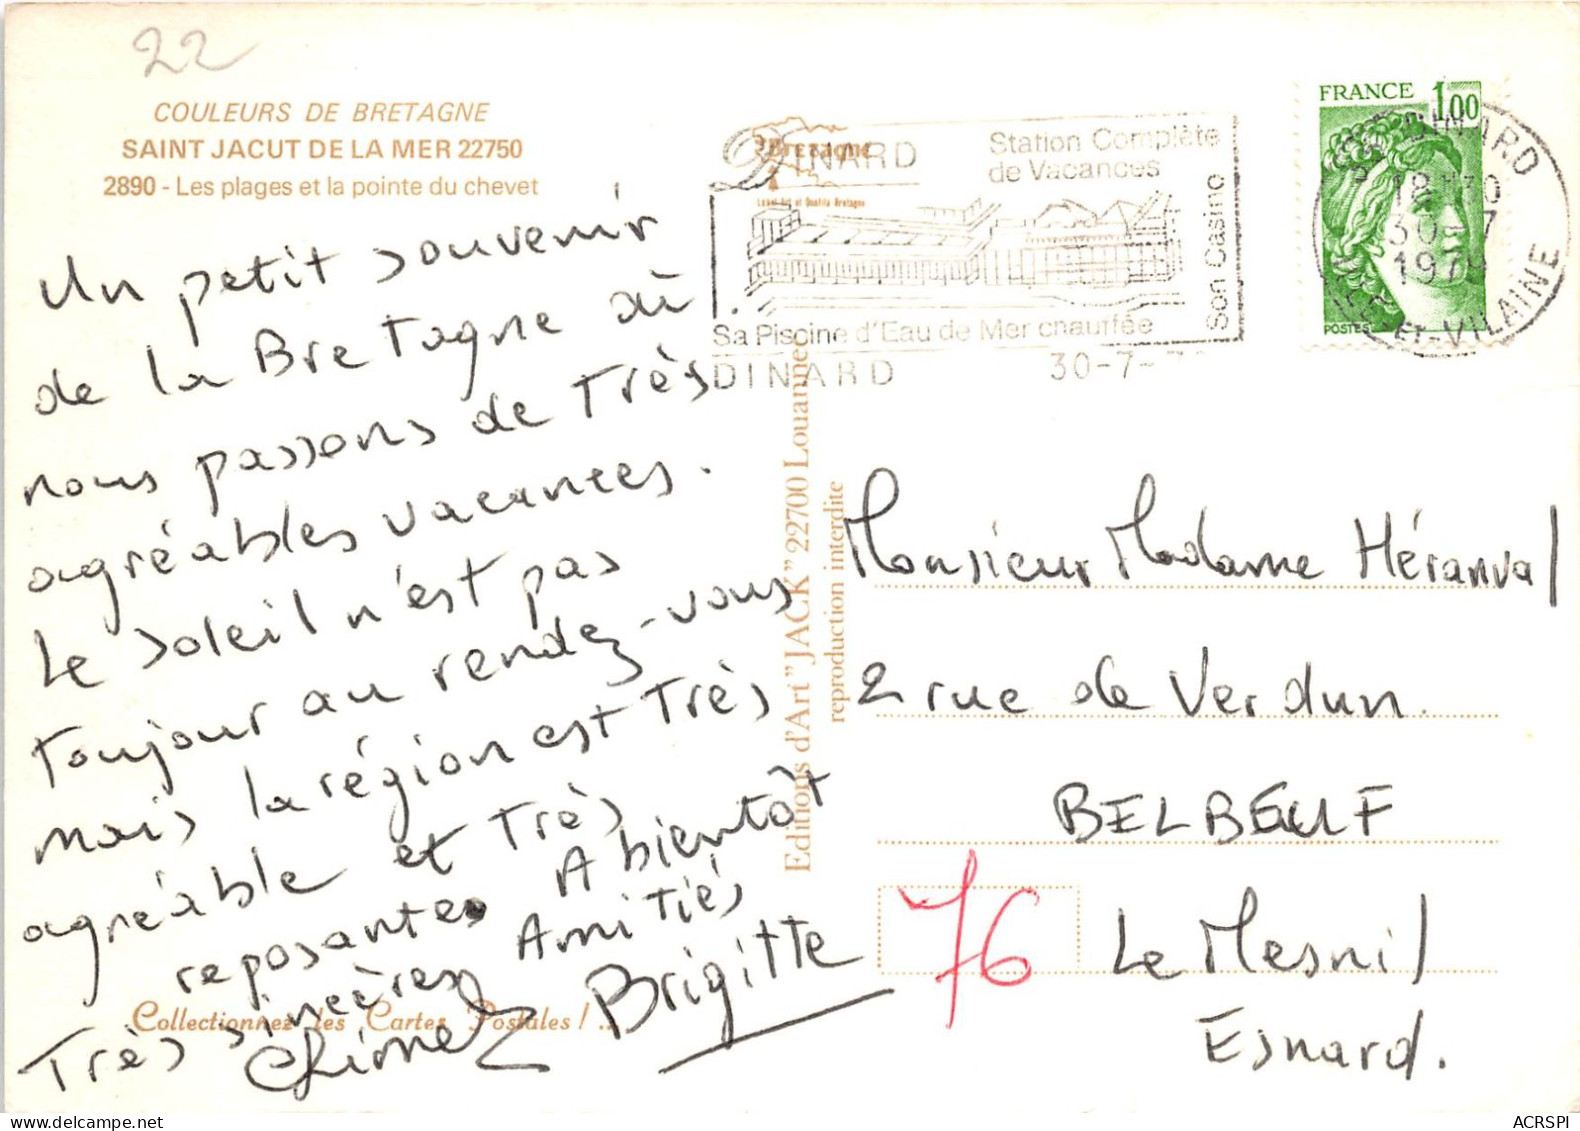 22
COULEURS DE BRETAGNE
SAINT JACUT DE LA MER 22750
2890 - Les plages et la pointe du chevet
Bretagne
Label Art et Qualité Bretagne
DINARD
Station Complète
de Vacances
Son Casino
Sa Piscine d'Eau de Mer chauffée
DINARD 30-7-
FRANCE 1,00
POSTES
DINARD
30-7
ET-VILAINE
Un petit souvenir
de la Bretagne où
nous passons de Très
agréables vacances.
Le soleil n'est pas
toujour au rendez-vous
mais la région est Très
agréable et Très
reposantes A bientôt
Très sincères Amitiés
Brigitte
Editions d'Art "JACK" 22700 Louannec
reproduction interdite
Monsieur Madame Héranval
2 rue de Verdun
BELBEUF
76 Le Mesnil
Esnard.
Collectionnez les Cartes Postales !...
ACRSPI